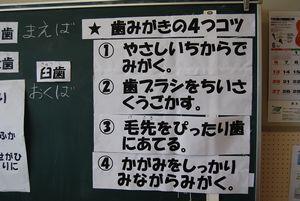 まえば
歯
臼歯
おくば
ふか
せがひ
りに
★ 歯みがきの4つコツ
① やさしいちからで
みがく。
② 歯ブラシをちいさ
くうごかす。
③ 毛先をぴったり歯
にあてる。
④ かがみをしっかり
みながらみがく。